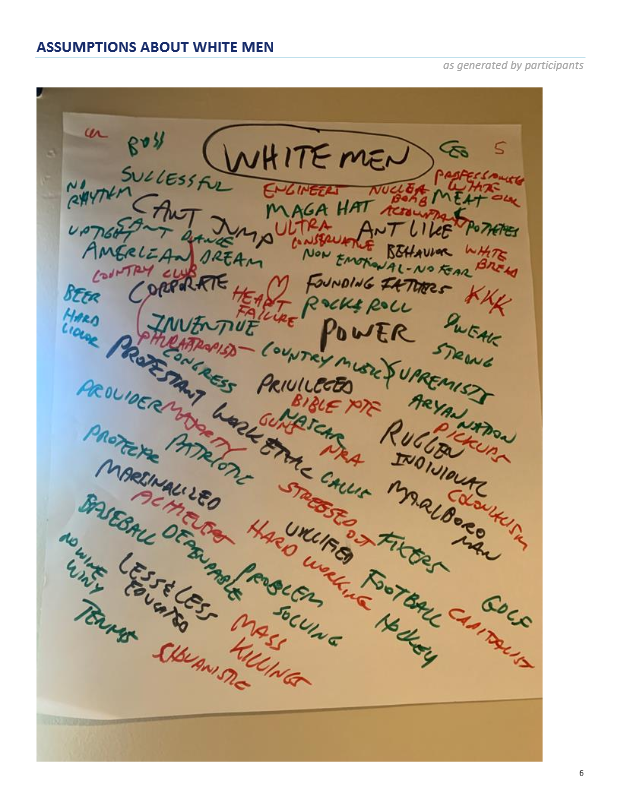 ASSUMPTIONS ABOUT WHITE MEN
as generated by participants
BOSS
WHITE MEN
CEO
S
SUCCESSFUL
PROFESSIONALS
NO RHYTHM
ENGINEERS
NUCLEAR BOMB
WHITE
MEAT
POTATOES
CAN'T JUMP
MAGA HAT
ACCOUNTANT
UPTIGHT
CAN'T DANCE
ULTRA CONSERVATIVE
ANT LIKE BEHAVIOR
WHITE BREAD
AMERICAN DREAM
NON EMOTIONAL - NO FEAR
COUNTRY CLUB
CORPORATE
HEART FAILURE
FOUNDING FATHERS
KKK
BEER
HARD LIQUOR
ROCK & ROLL
INVENTIVE
POWER
WEAK
STRONG
PHILANTHROPIST
CONGRESS
COUNTRY MUSIC
SUPREMISTS
PROTESTANT WORK ETHIC
PRIVILEGED
ARYAN NATION
PROVIDER
MAJORITY
BIBLE TOTE
GUNS
NASCAR
NRA
RUGGED INDIVIDUAL
PICKUPS
PATRIOTIC
MARGINALIZED
STRESSED OUT
MARLBORO MAN
COLONIALISM
ACHIEVERS
VILLIFIED
FIXERS
BASEBALL
DEPENDABLE
HARD WORKING
NO WINE
WINY
LESS & LESS EDUCATED
PROBLEM SOLVING
FOOTBALL
GOLF
HOCKEY
CAPITALIST
TENNIS
MASS KILLINGS
CHAUVANISTIC
6